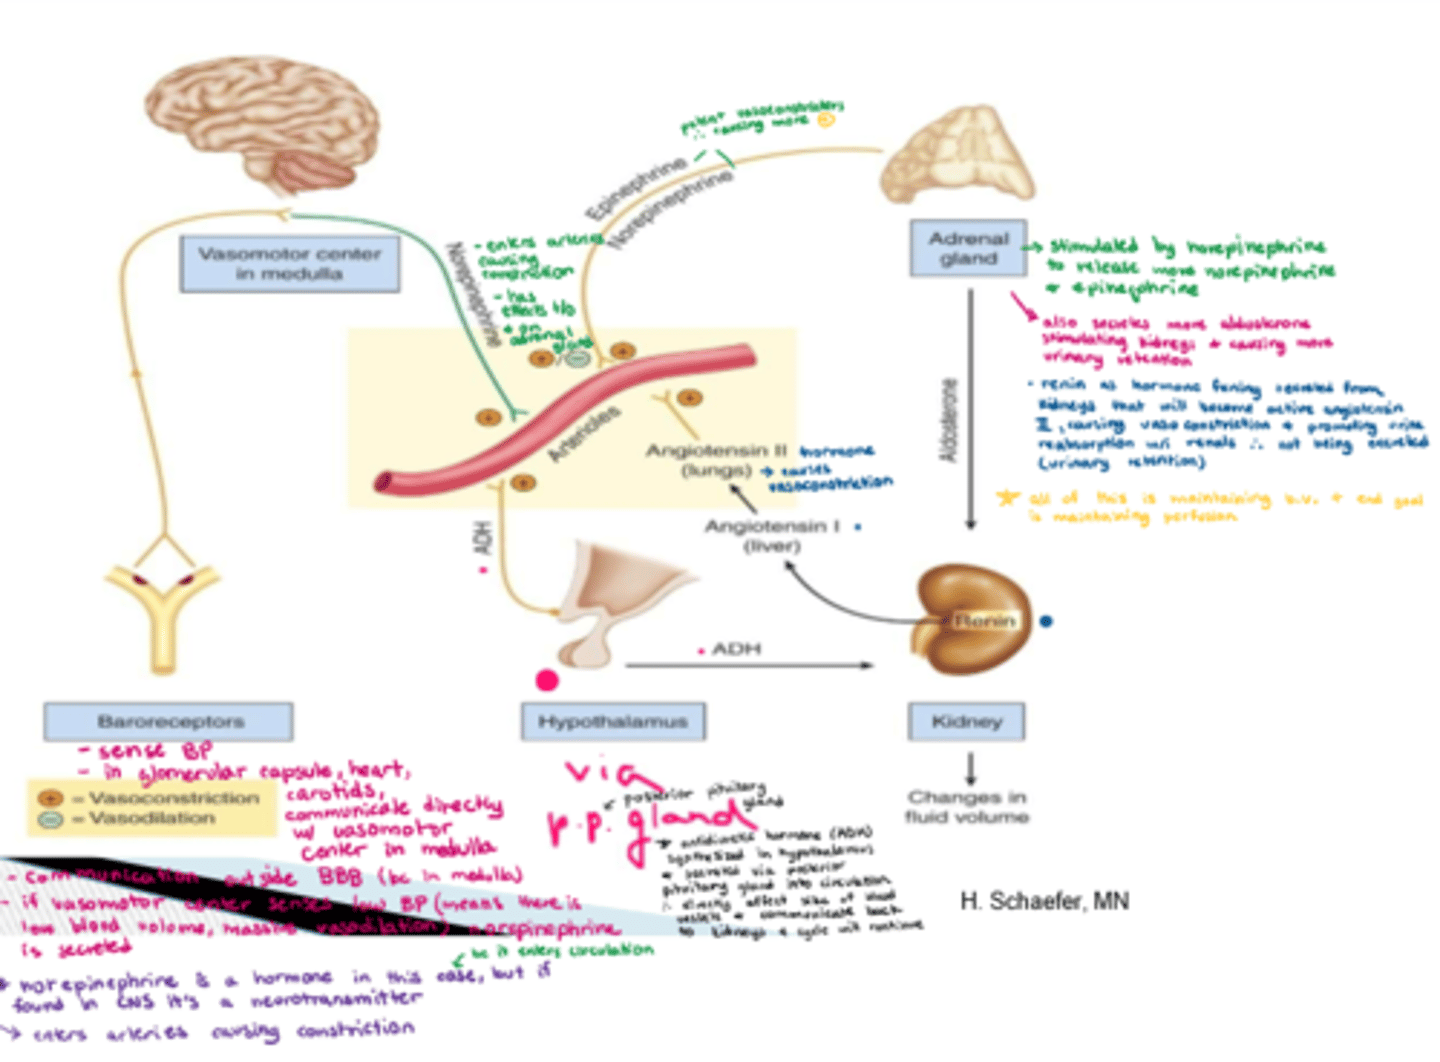 potent vasoconstrictors
∴ causing more +
Epinephrine
Norepinephrine
Vasomotor center
in medulla
Norepinephrine
- enters arteries
causing
constriction
- has
effects
+ on
adrenal
gland
Adrenal
gland
→ stimulated by norepinephrine
to release more norepinephrine
+ epinephrine
also secretes more aldosterone
stimulating kidneys + causing more
urinary retention
• renin as hormone secreted from
kidneys that will become active angiotensin
II, causing vasoconstriction + promoting urine
reabsorption w/i renals ∴ not being excreted
(urinary retention)
all of this is maintaining b.v. + end goal
is maintaining perfusion
Aldosterone
Arterioles
Angiotensin II
(lungs)
hormone
→ causes
vasoconstriction
Angiotensin I
(liver)
ADH
ADH
Renin
Baroreceptors
Hypothalamus
Kidney
Changes in
fluid volume
- sense BP
- in glomerular capsule, heart,
carotids,
communicate directly
w/ vasomotor
center in medulla
+ = Vasoconstriction
− = Vasodilation
- communication outside BBB (bc in medulla)
- if vasomotor center senses low BP (means there is
low blood volume, massive vasodilation) norepinephrine
is secreted
bc it enters circulation
norepinephrine is a hormone in this case, but if
found in CNS it's a neurotransmitter
→ enters arteries causing constriction
via
p.p. gland
posterior pituitary
gland
antidiuretic hormone (ADH)
synthesized in hypothalamus
+ secreted via posterior
pituitary gland into circulation
∴ directly affect size of blood
vessels + communicate back
to kidneys + cycle will continue
H. Schaefer, MN